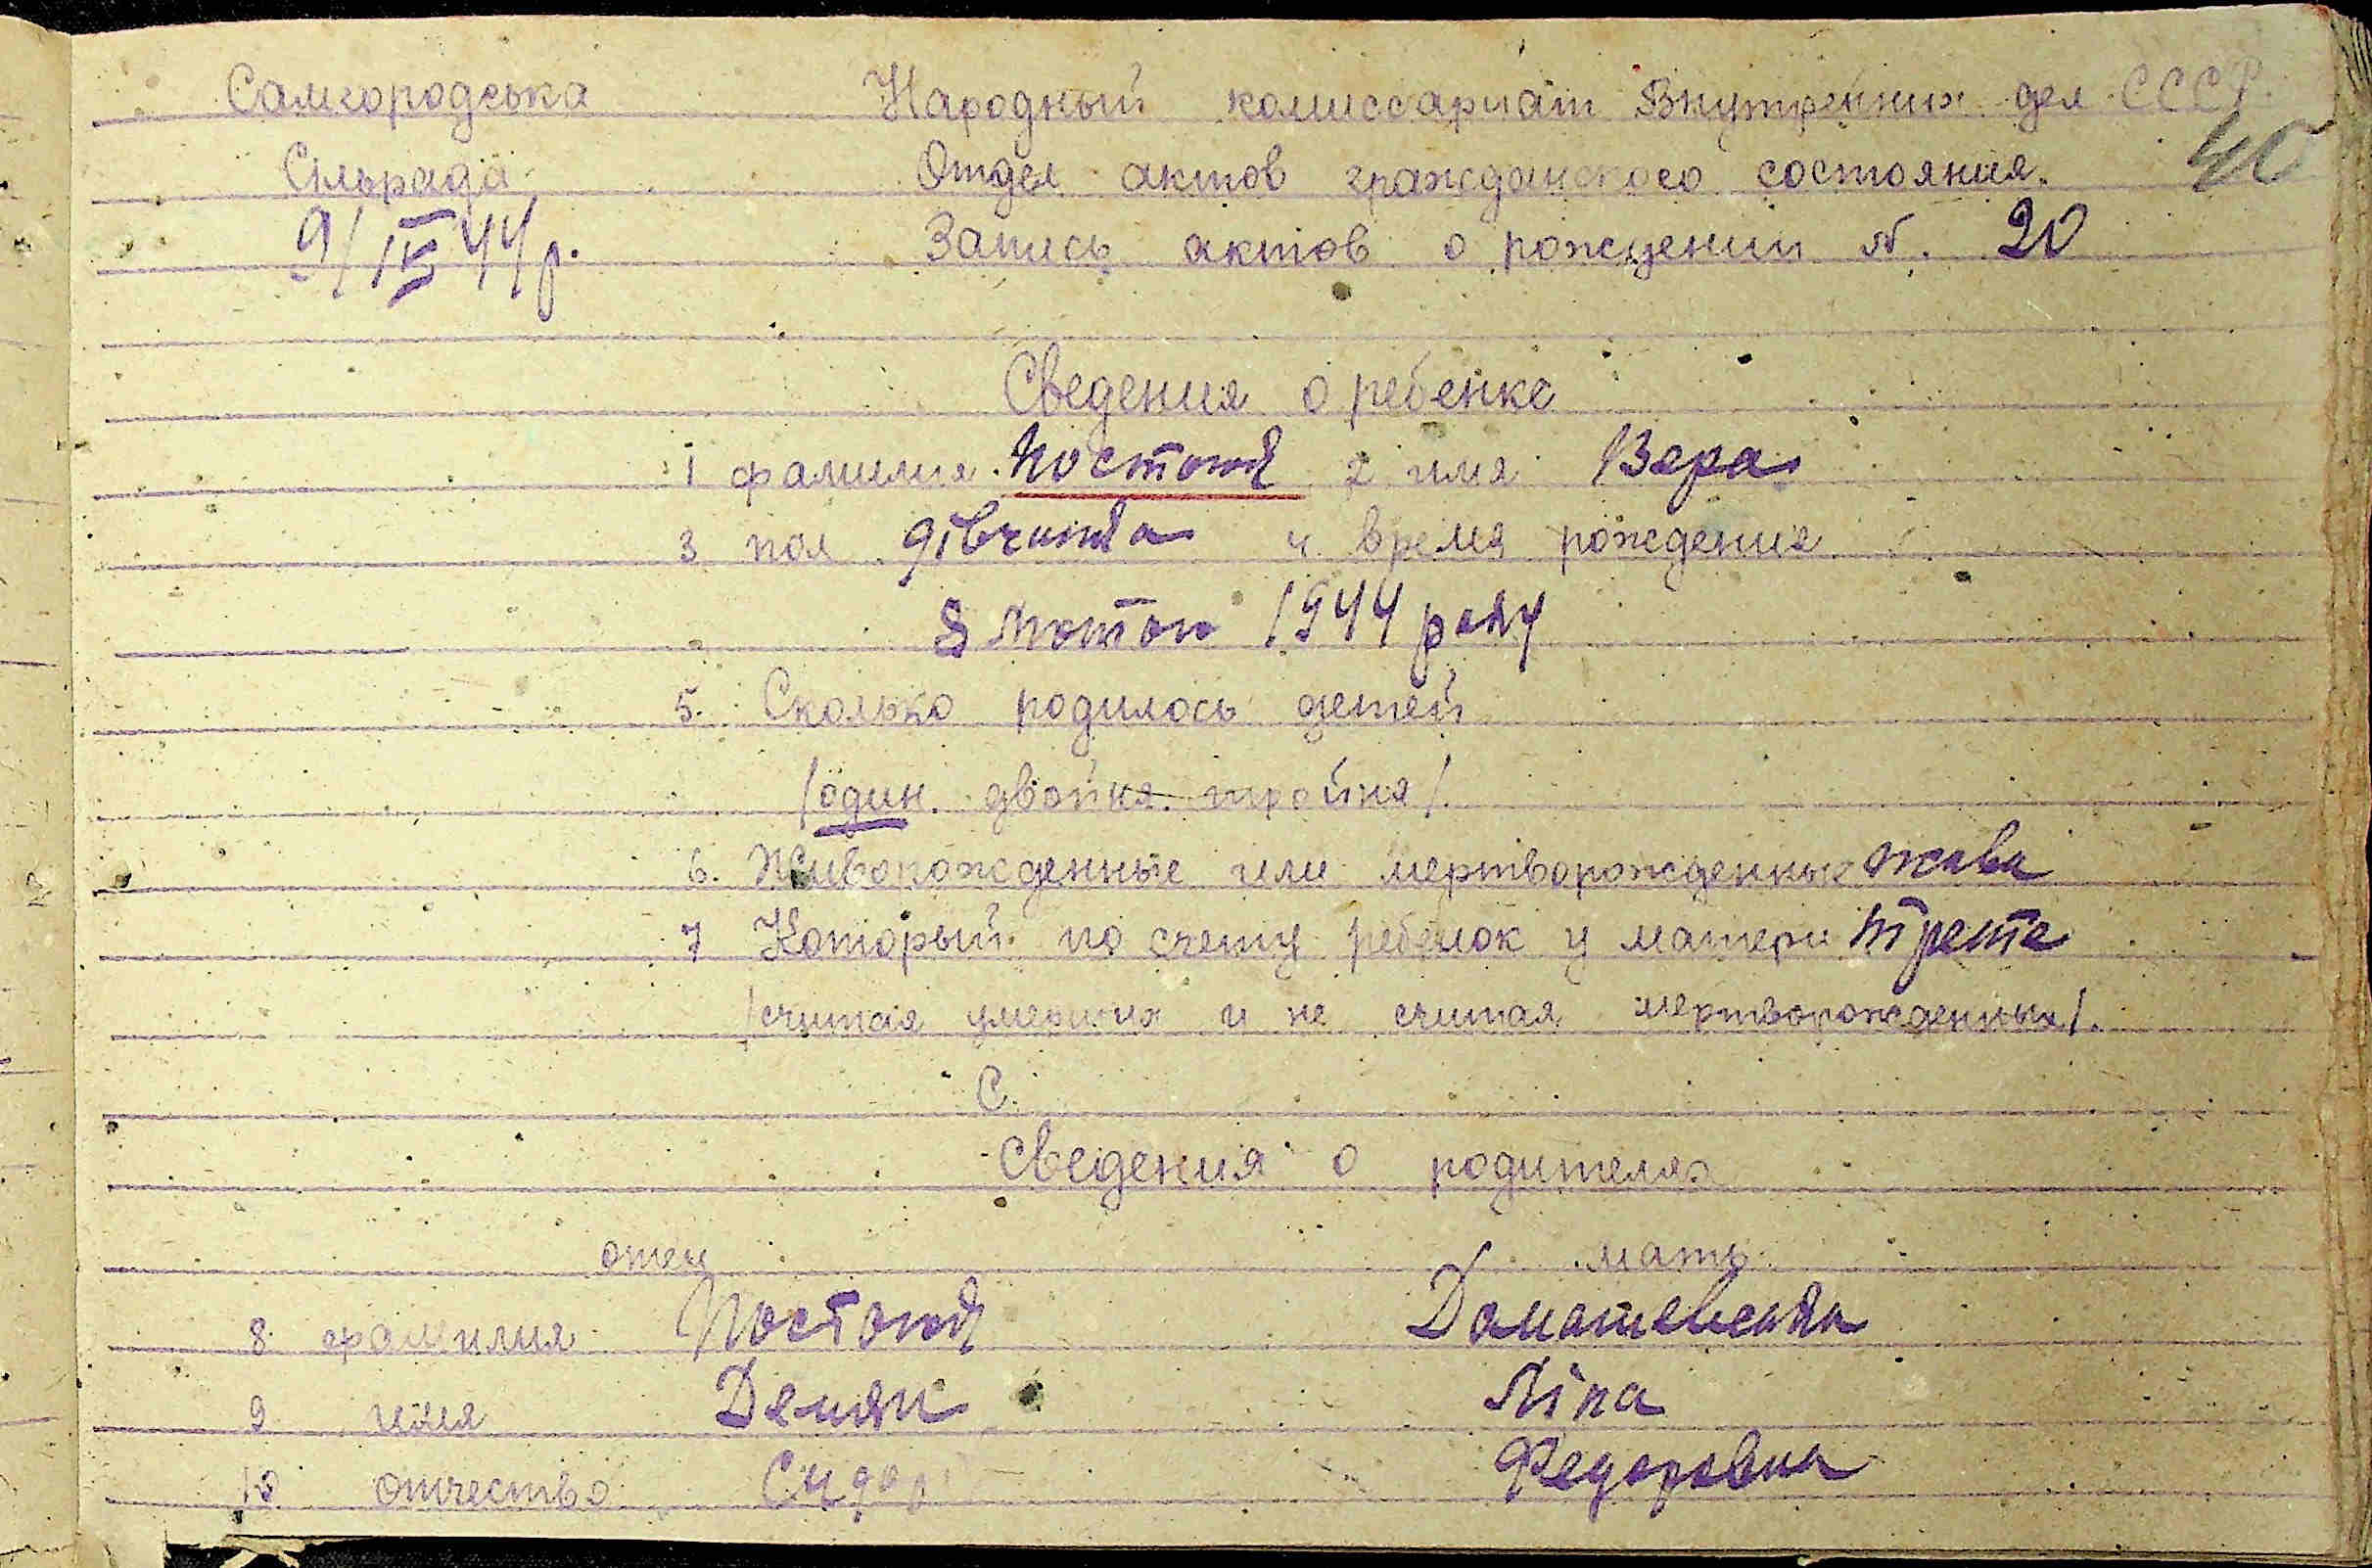 Самгородська Народный комиссариат Внутренних дел СССР.
40
Сільрада Отдел актов гражданского состояния.
9/IV 44 р. Запись актов о рождении №. 20
Сведения о ребенке
1 фамилия Постой 2 имя Вера
3 пол дівчинка 4. время рождения
8 Лютого 1944 року
5. Сколько родилось детей
/один. двойня. тройня/.
6. Живорожденные или мертворожденные жива
7 Который по счету ребенок у матери трете
/считая умерших и не считая мертворожденных/.
С.
Сведения о родителях
отец мать
8. фамилия Постой Доматевська
9 имя Демян Ліпа
10 отчество Сидор Федоровна